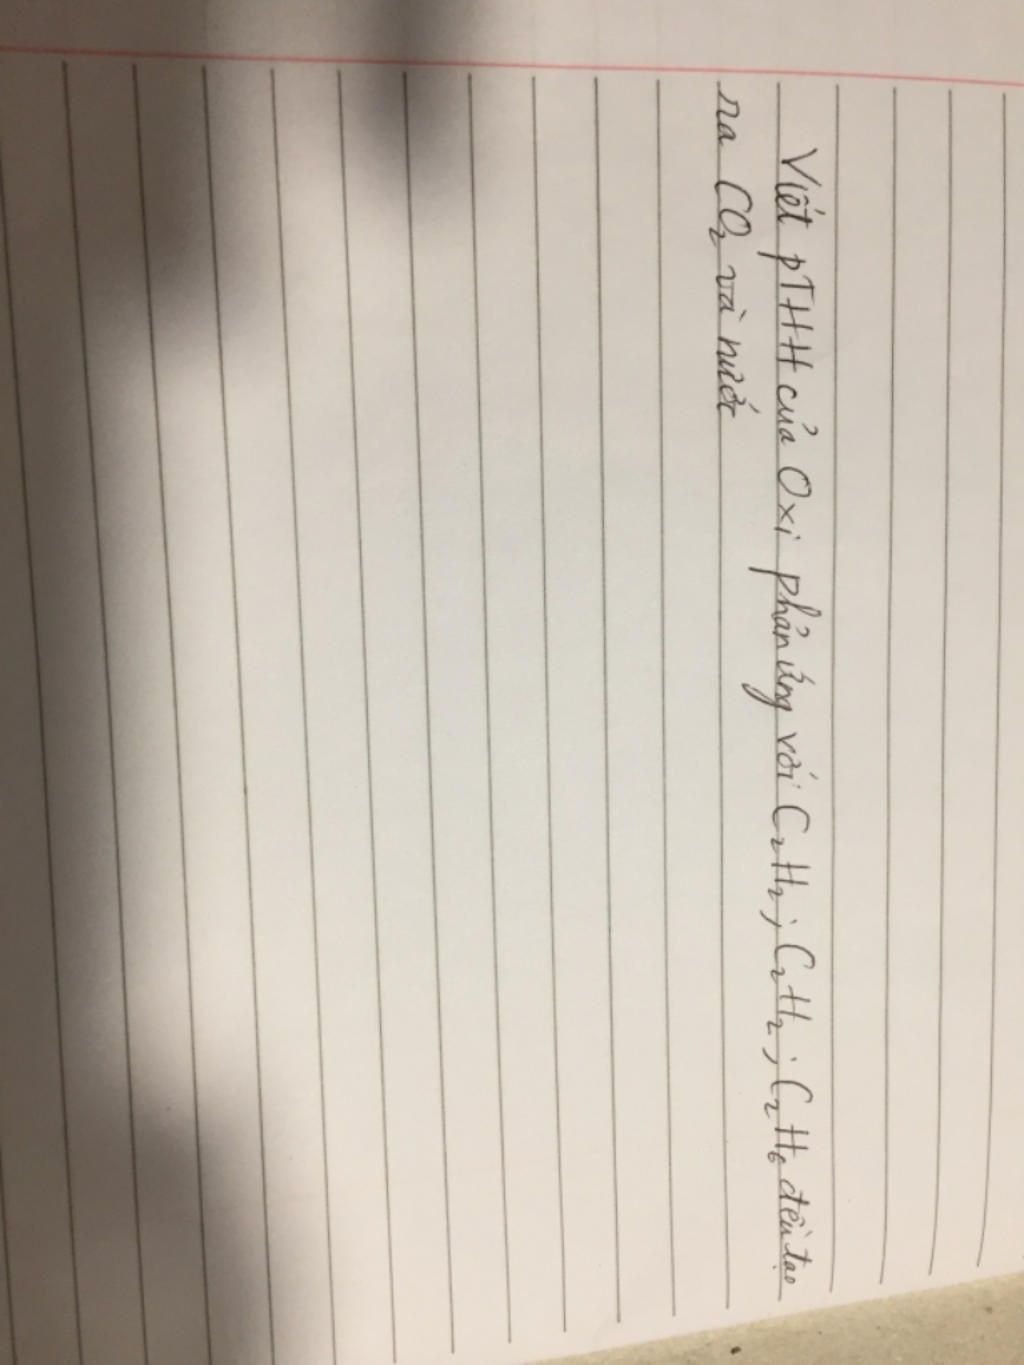 Viết pTHH của Oxi phản ứng với C₂H₂; C₂H₂; C₂H₆ đều tạo
ra CO₂ và nước